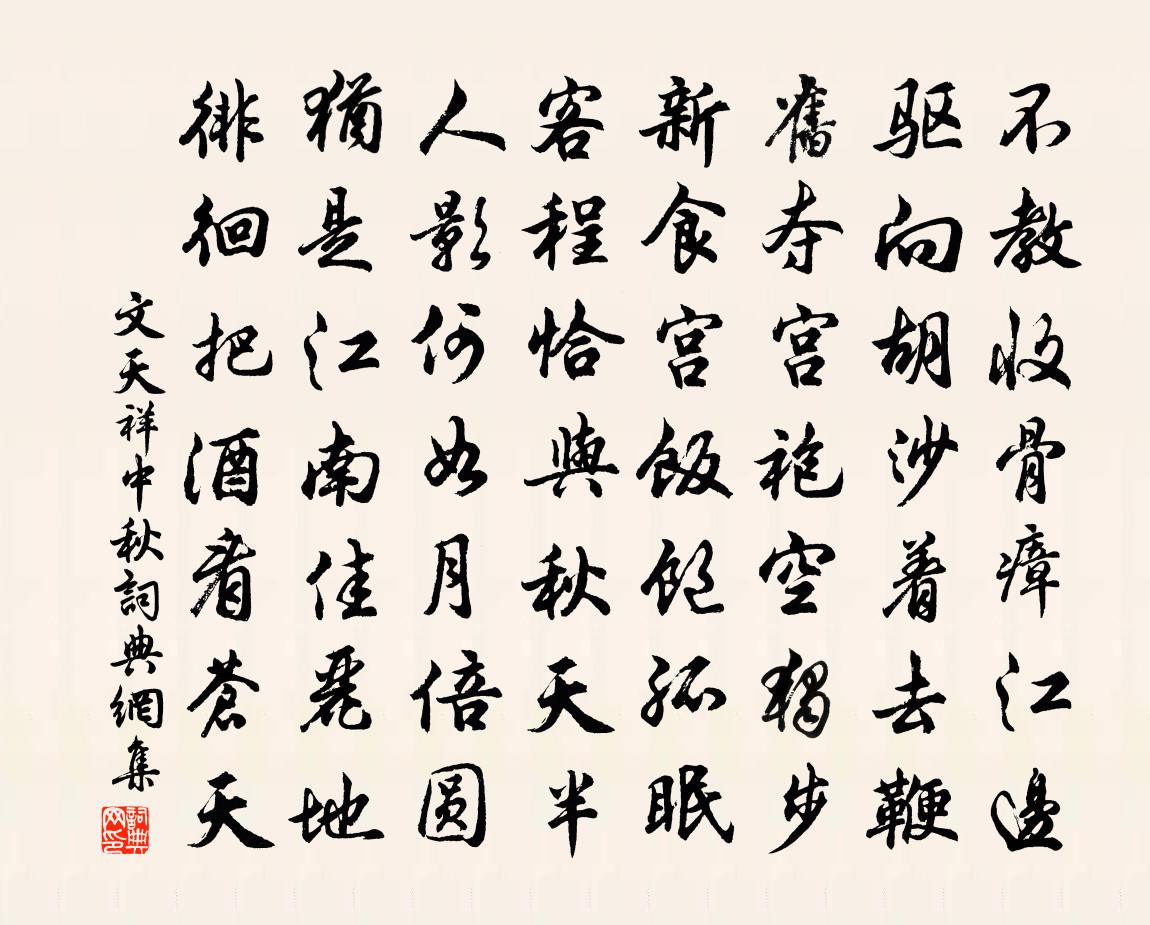 不教收骨瘴江邊
驱向胡沙着去鞭
舊夺宫袍空獨步
新食宫飯飽孤眠
客程恰與秋天半
人影何如月倍圆
猶是江南佳麗地
徘徊把酒看蒼天
文天祥中秋詞典網集
詞典网印